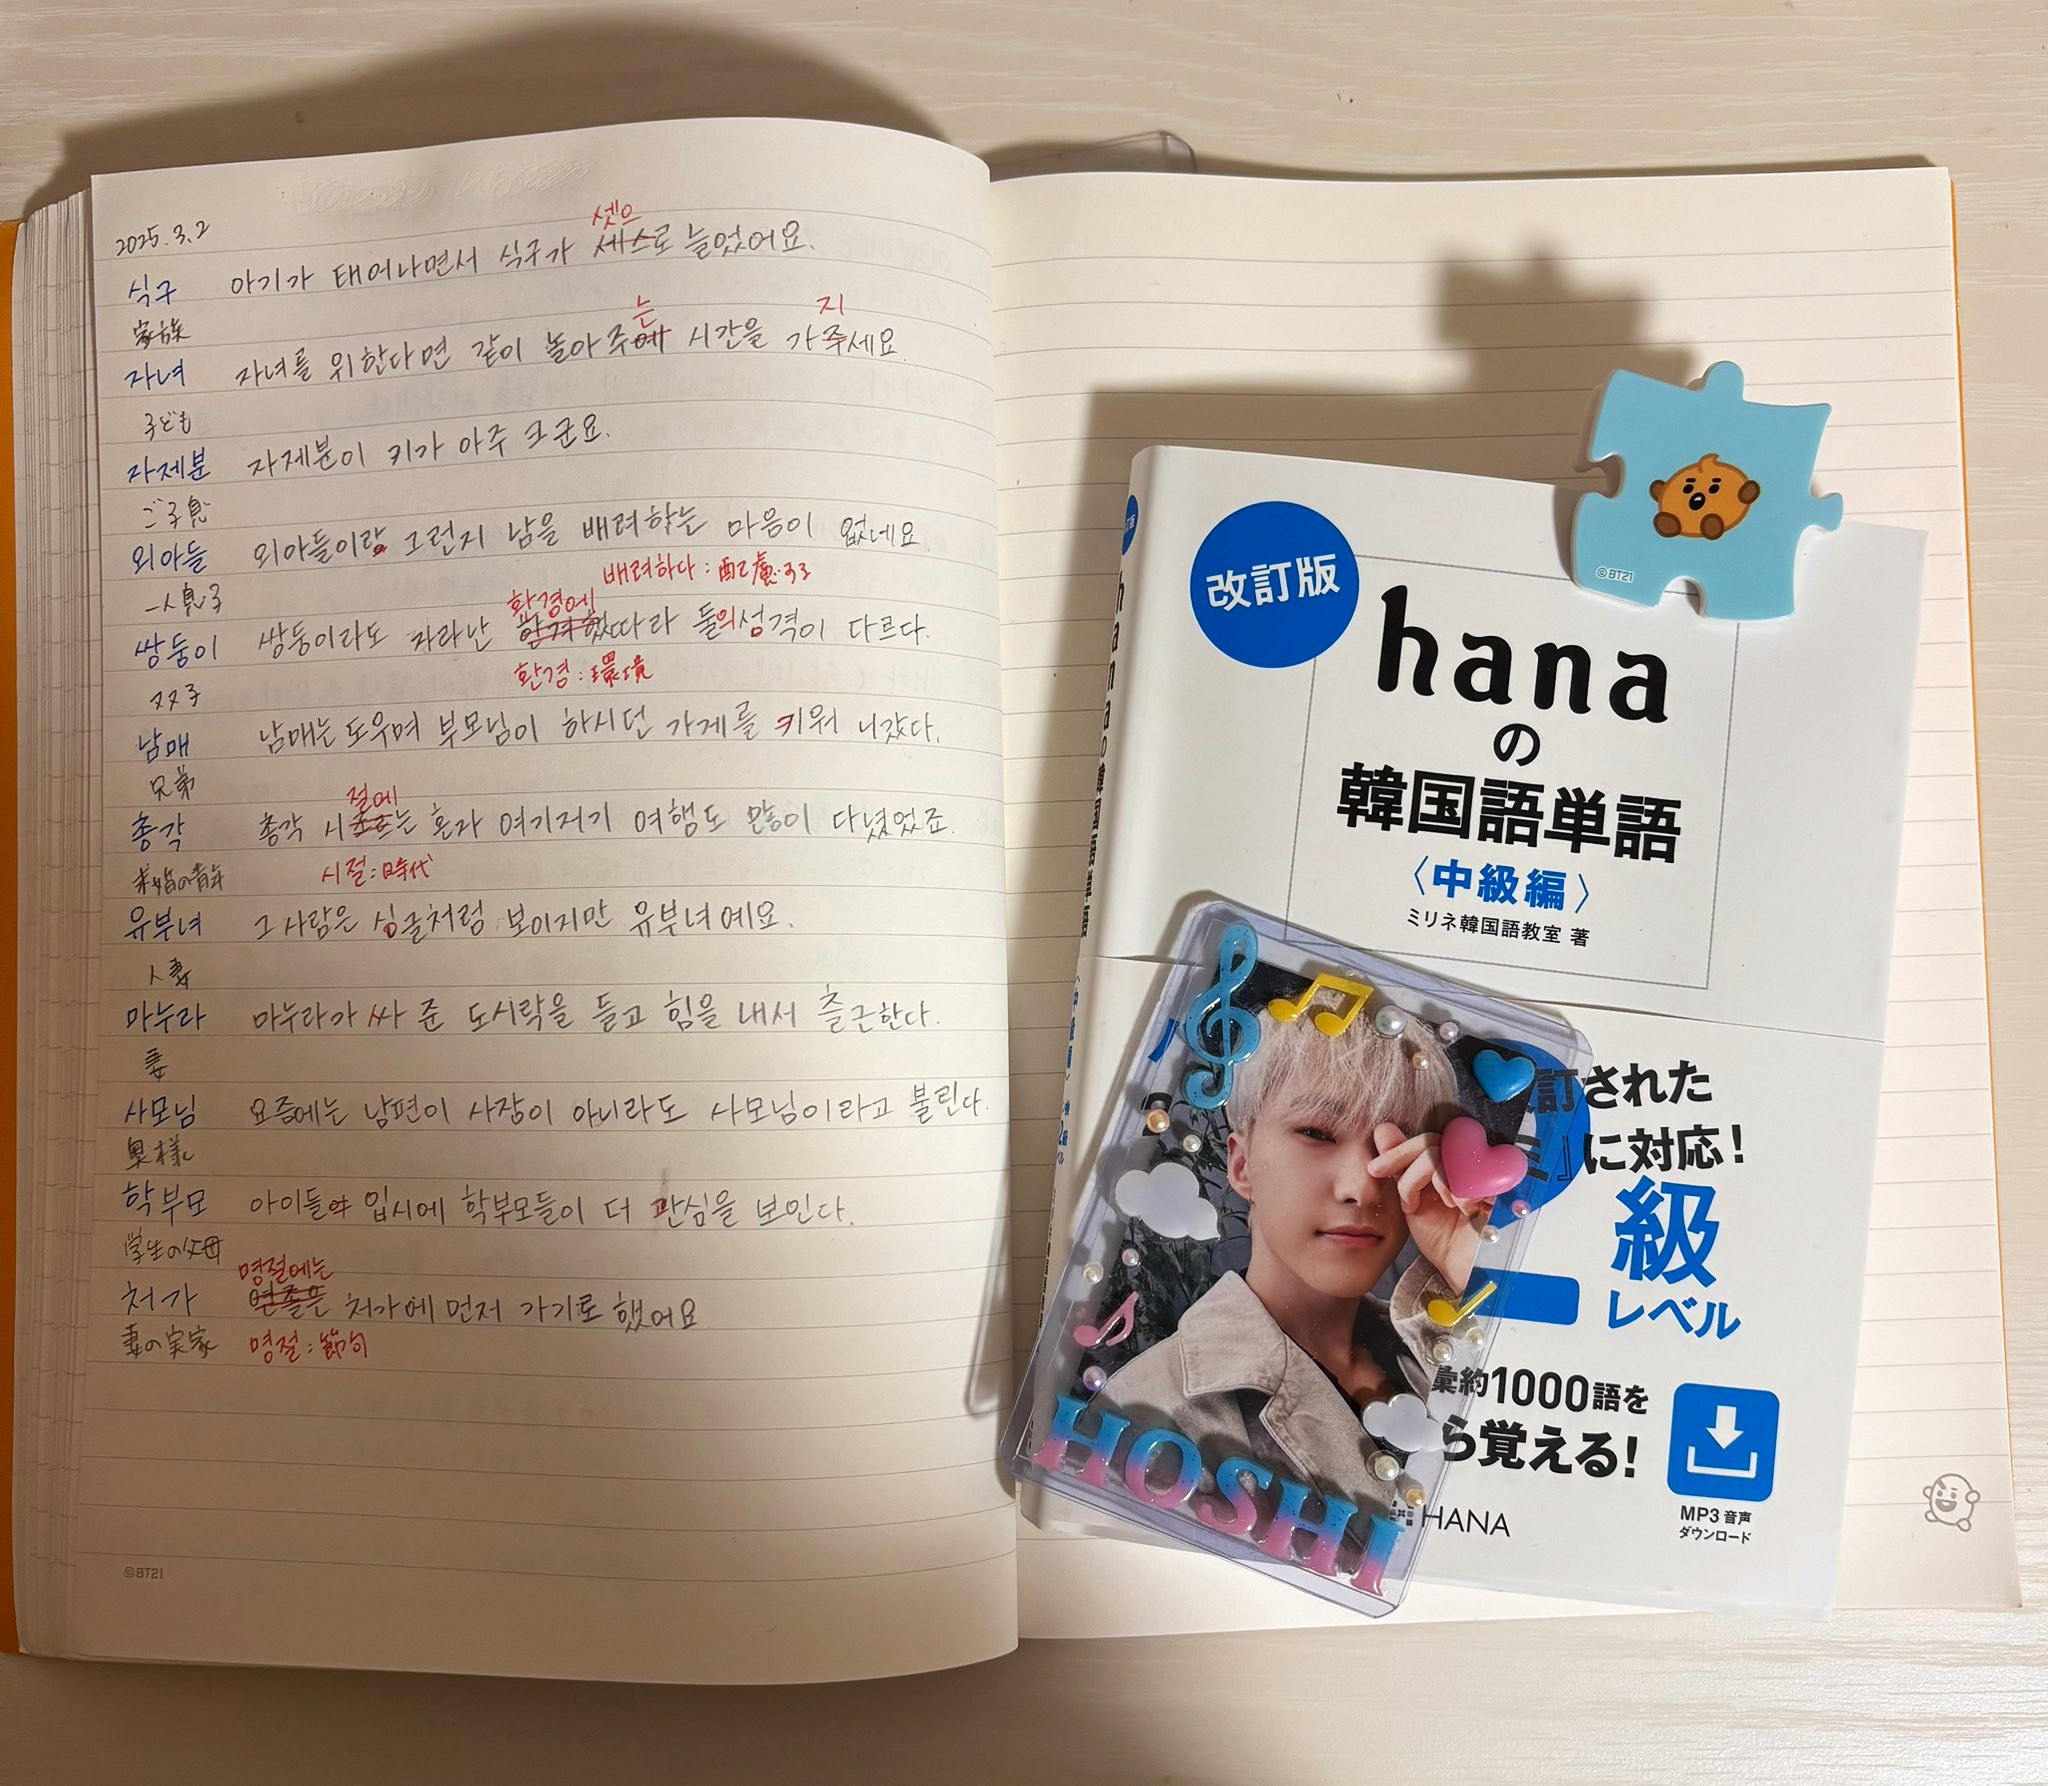 2025.3.2
셋으
식구 아기가 태어나면서 식구가 세스로 늘었어요.
家族
는 지
자녀 자녀를 위한다면 같이 놀아주에 시간을 가주세요.
子ども
자제분 자제분이 키가 아주 크군요.
ご子息
외아들 외아들이랑 그런지 남을 배려하는 마음이 없네요.
배려하다:配慮する
一人息子
환경에
쌍둥이 쌍둥이라도 자라난 따라 둘의성격이 다르다.
환경:環境
双子
남매 남매는 도우며 부모님이 하시던 가게를 키워 나갔다.
兄弟
절에
총각 총각 시는 혼자 여기저기 여행도 많이 다녔었죠.
未婚の青年 시절:時代
유부녀 그 사람은 싱글처럼 보이지만 유부녀예요.
人妻
마누라 마누라가 싸 준 도시락을 들고 힘을 내서 출근한다.
妻
사모님 요즘에는 남편이 사장이 아니라도 사모님이라고 불린다.
奥様
학부모 아이들 입시에 학부모들이 더 관심을 보인다.
学生の父母
명절에는
처가 처가에 먼저 가기로 했어요
妻の実家 명절:節句
©BT21
©BT21
改訂版
hana
の
韓国語単語
〈中級編〉
ミリネ韓国語教室 著
hanaの韓国語単語
訂された
』に対応!
級
レベル
彙約1000語を
ら覚える!
MP3 音声
ダウンロード
HANA
HOSHI